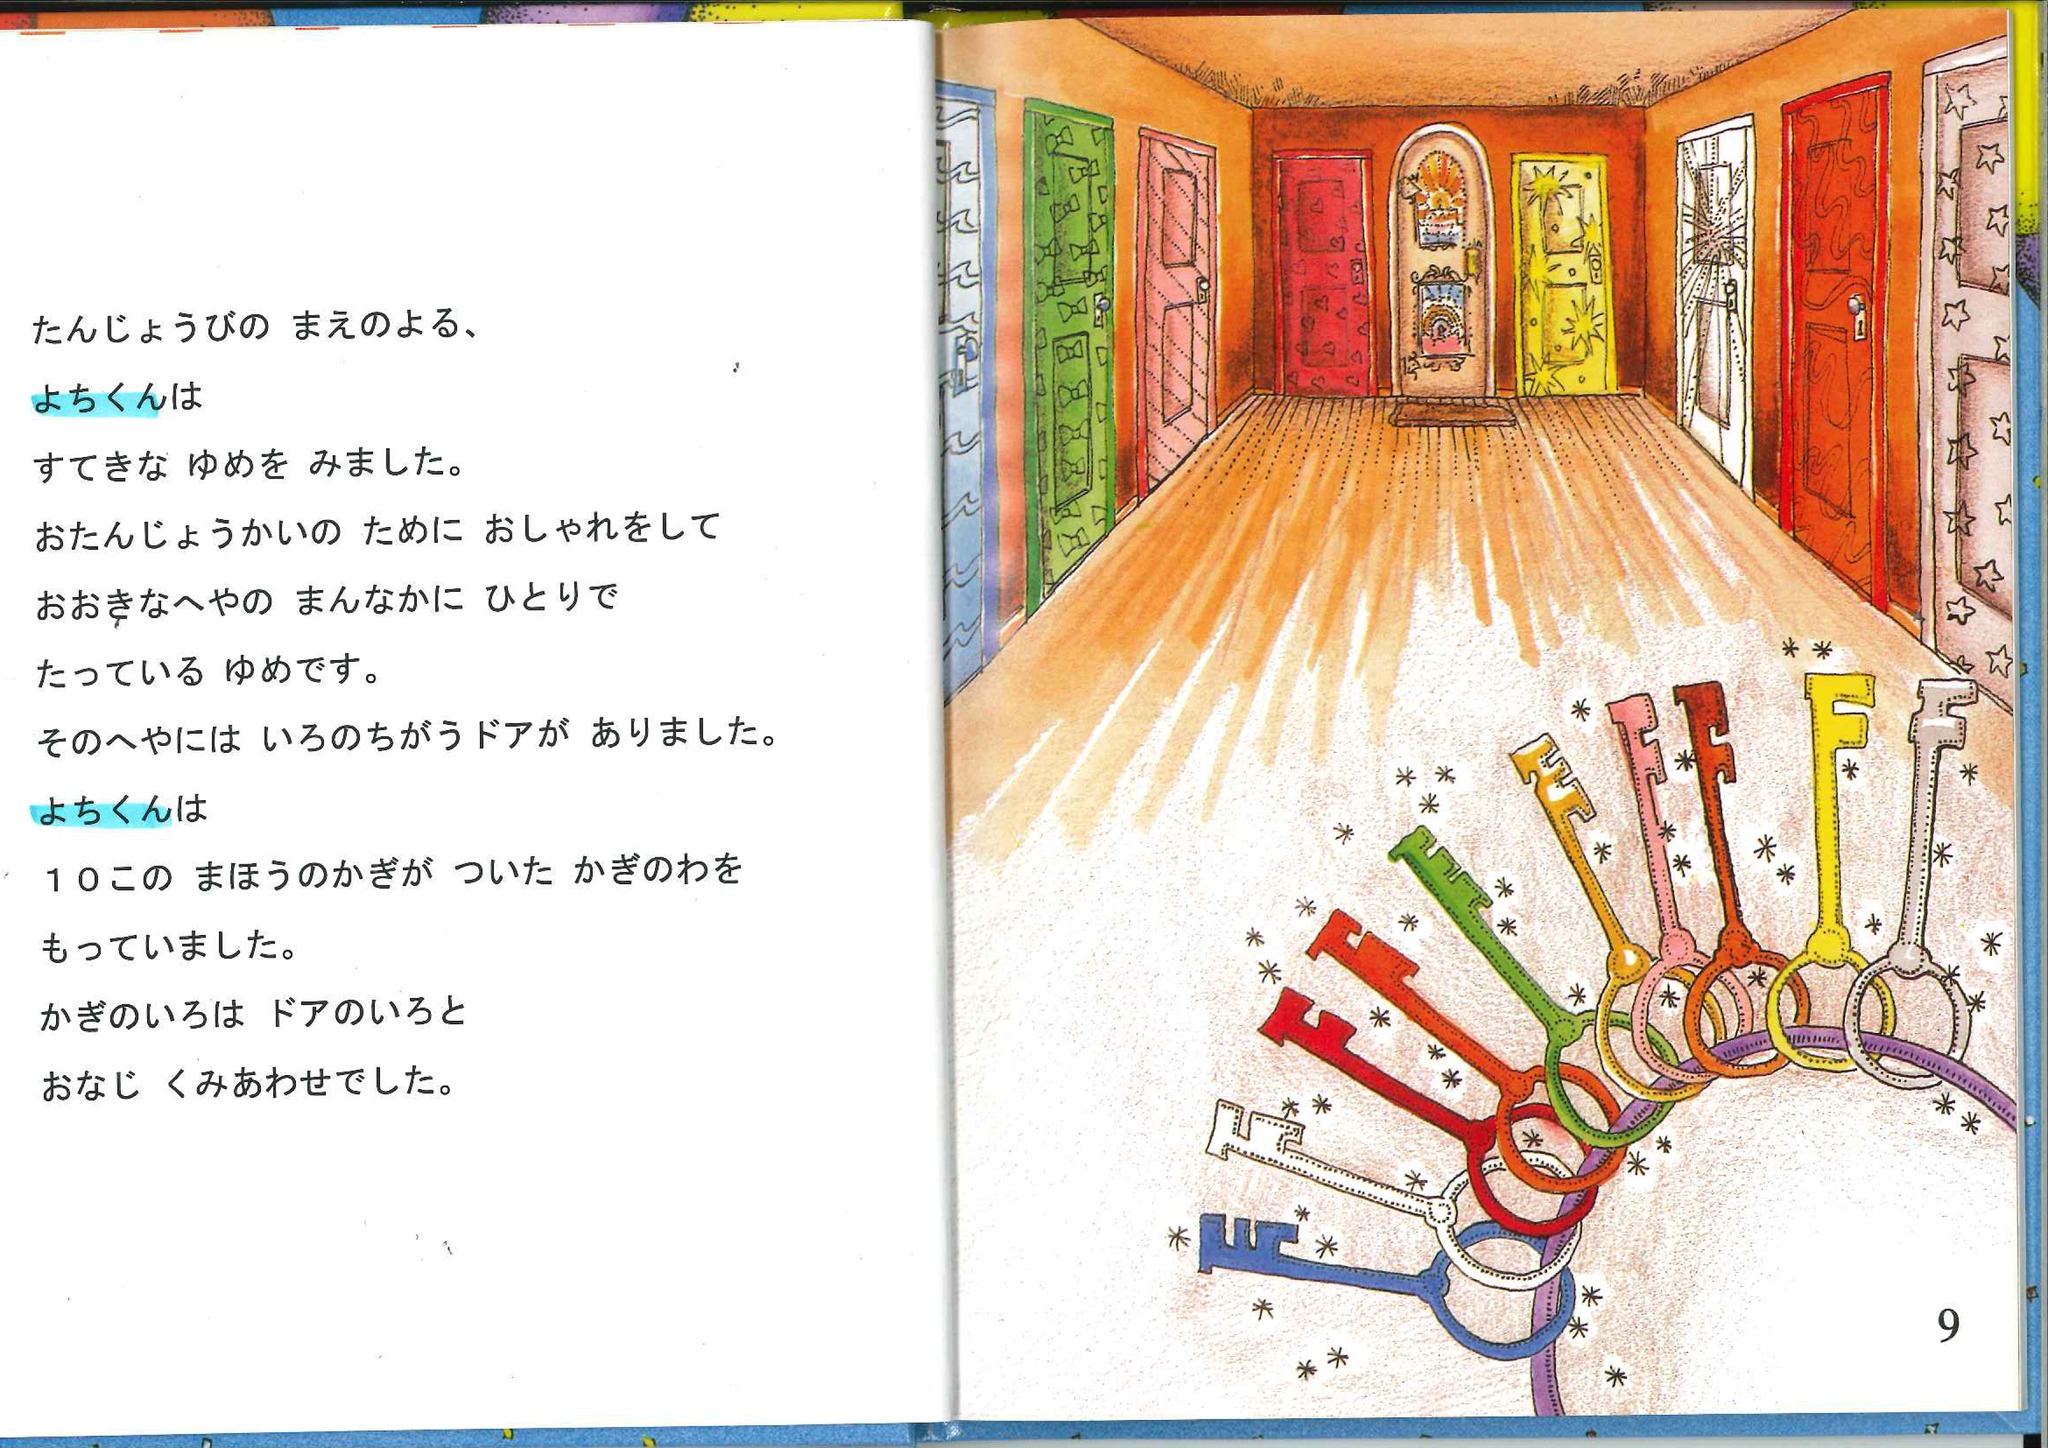 たんじょうびの まえのよる、
よちくんは
すてきな ゆめを みました。
おたんじょうかいの ために おしゃれをして
おおきなへやの まんなかに ひとりで
たっている ゆめです。
そのへやには いろのちがうドアが ありました。
よちくんは
１０この まほうのかぎが ついた かぎのわを
もっていました。
かぎのいろは ドアのいろと
おなじ くみあわせでした。
9